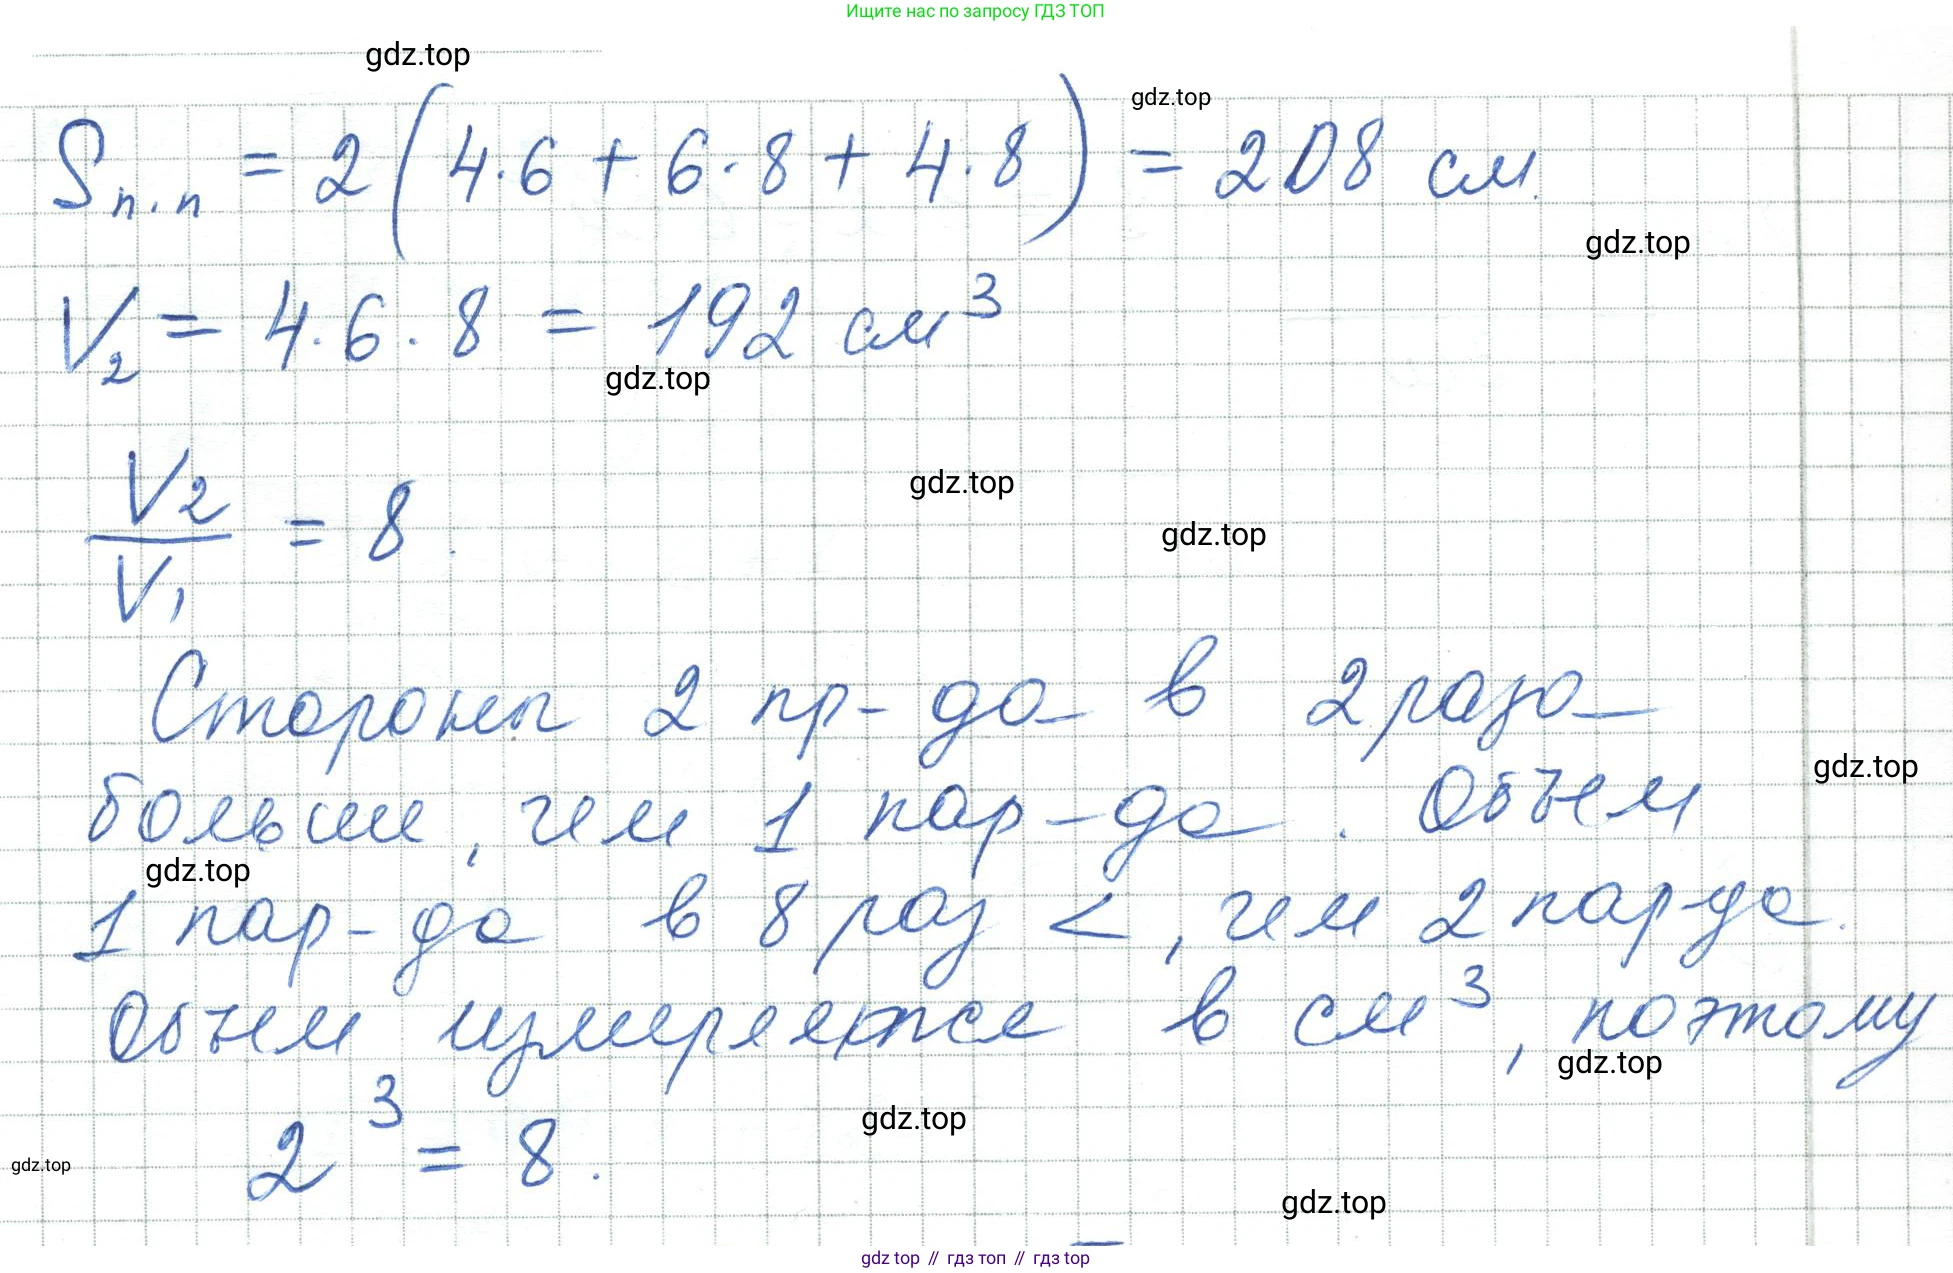 Ищите нас по запросу ГДЗ ТОП
gdz.top
gdz.top
Sп.п = 2(4·6 + 6·8 + 4·8) = 208 см.
gdz.top
V₂ = 4·6·8 = 192 см³
gdz.top
V₂/V₁ = 8.
gdz.top
gdz.top
Стороны 2 пр-да в 2 раза
больше, чем 1 пар-да. Объем
gdz.top
gdz.top
1 пар-да в 8 раз <, чем 2 пар-да.
Объем измеряется в см³, поэтому
gdz.top
2³ = 8.
gdz.top
gdz.top
gdz.top
gdz top // гдз топ // гдз top